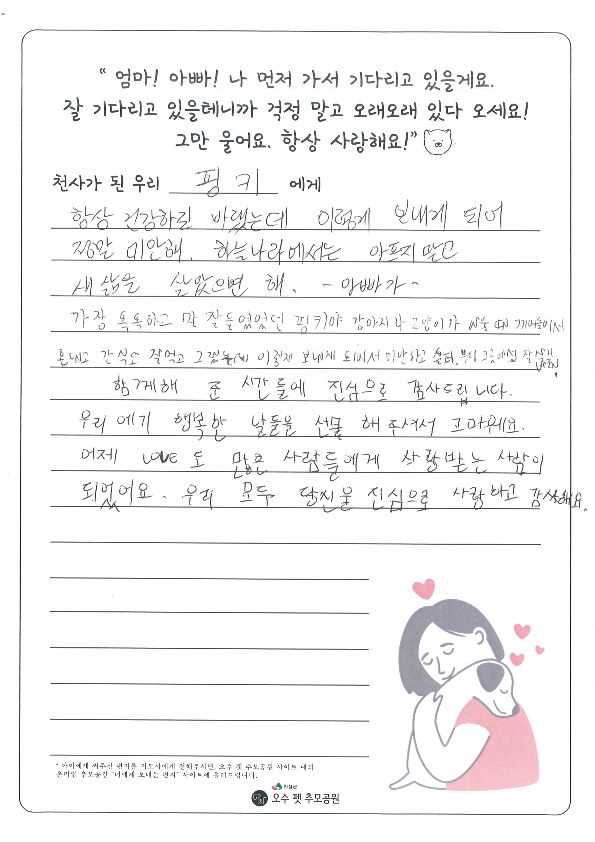 “ 엄마! 아빠! 나 먼저 가서 기다리고 있을게요.
잘 기다리고 있을테니까 걱정 말고 오래오래 있다 오세요!
그만 울어요. 항상 사랑해요!”
천사가 된 우리 핑키 에게
항상 건강하길 바랬는데 이렇게 보내게 되어
정말 미안해. 하늘나라에서는 아프지 말고
새 삶을 살았으면 해. - 아빠가 -
가장 똑똑하고 말 잘들었었던 핑키야 강아지나 고양이가 싸울 때 끼어들어서
혼내고 간식도 잘먹고 그랬는데 이렇게 보내게 되어서 미안하고 그곳에선 잘
함께해 준 시간들에 진심으로 감사드립니다.
우리에게 행복한 날들을 선물 해주셔서 고마워요.
어제 LOVE 도 많은 사람들에게 사랑받는 사람이
되었어요. 우리 모두 당신을 진심으로 사랑하고 감사해요.
* 아이에게 써주신 편지를 지도사에게 전해주시면, 오수 펫 추모공원 사이트 내의
온라인 추모공간 "너에게 보내는 편지" 사이트에 올려드립니다.
임실군
오수 펫 추모공원